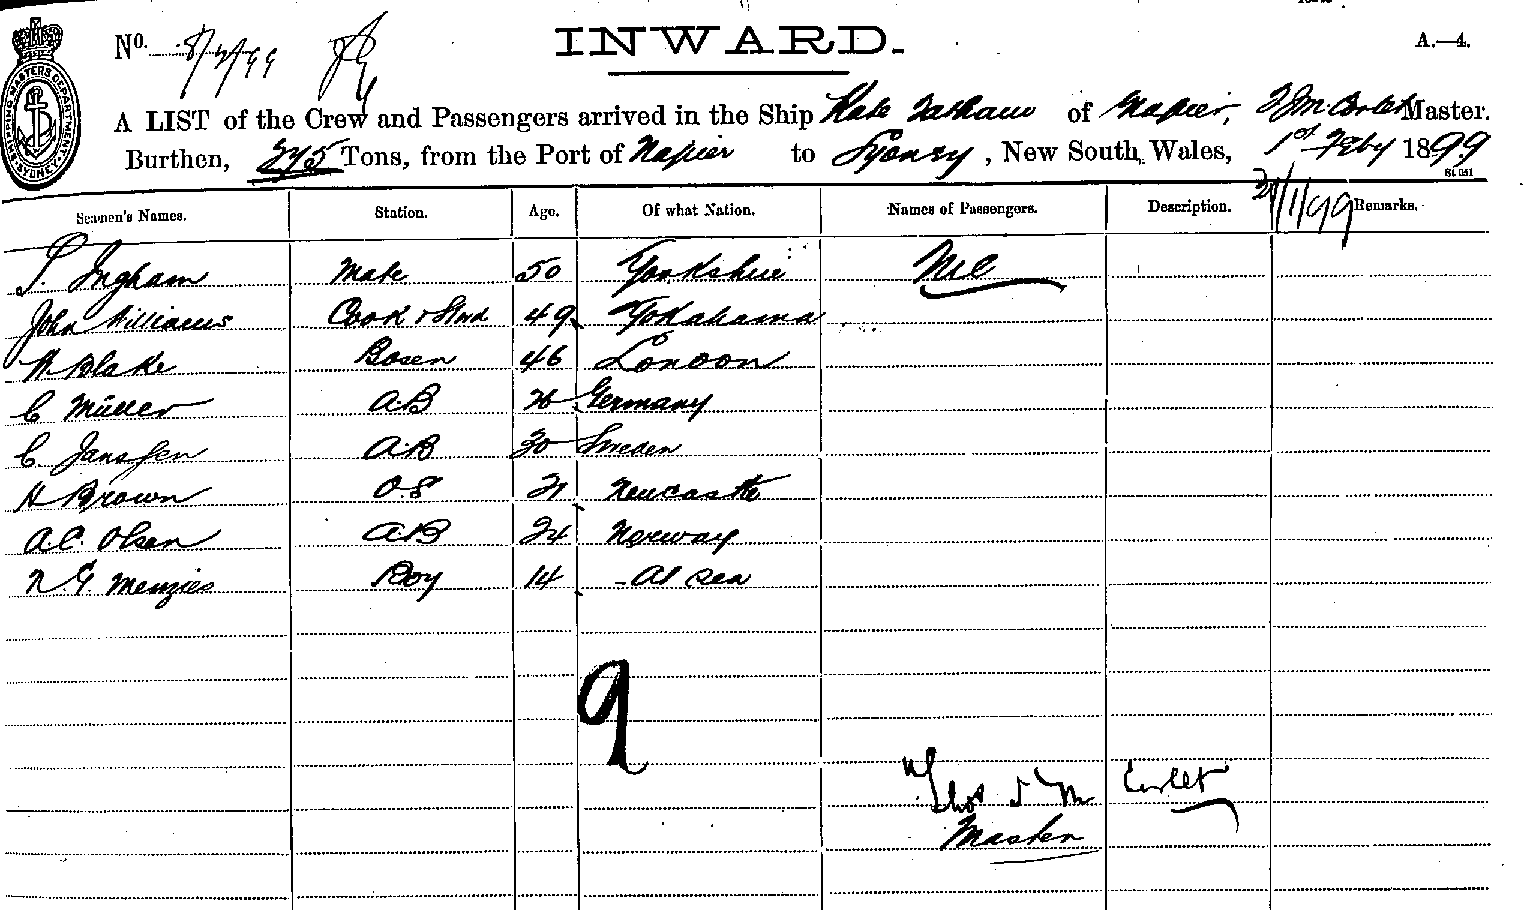 INWARD.
No. 8/2/99
A.—4.
SHIPPING MASTERS DEPARTMENT. SYDNEY.
A LIST of the Crew and Passengers arrived in the Ship Kate Tatham of Napier, T J McCorlet Master.
Burthen, 275 Tons, from the Port of Napier to Sydney, New South Wales, 1st Feby 1899
31/1/99
Seamen's Names. Station. Age. Of what Nation. Names of Passengers. Description. Remarks.
T. Ingham Mate 50 Yorkshire Nil
John Williams Cook & Stwd 49 Yokahama
W. Blake Bosen 46 London
C Müller A.B 26 Germany
C. Janssen A.B 30 Sweden
H Brown O.S 21 Newcastle
A.C. Olsen A.B 24 Norway
N.G. Menzies Boy 14 At sea
9
Thos J Mc Corlet
Master